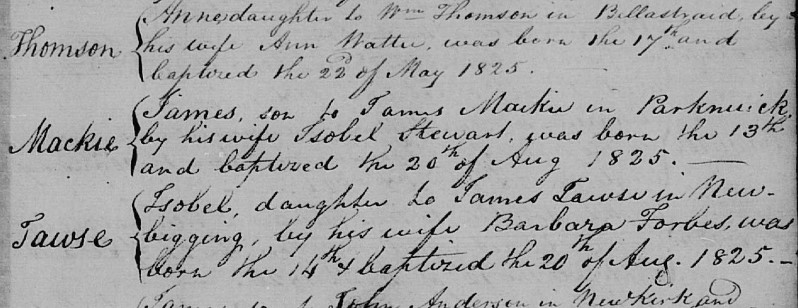 Thomson { Anne daughter to Wm Thomson in Bellastraid, by
his wife Ann Wattie, was born the 17th and
baptized the 22d of May 1825.
Mackie { James, son to James Mackie in Parknuick,
by his wife Isobel Stewart, was born the 13th
and baptized the 20th of Aug 1825. —
Tawse { Isobel, daughter to James Tawse in New-
bigging, by his wife Barbara Forbes, was
born the 14th & baptized the 20th of Aug. 1825. —
James son to John Anderson in Newkirk and